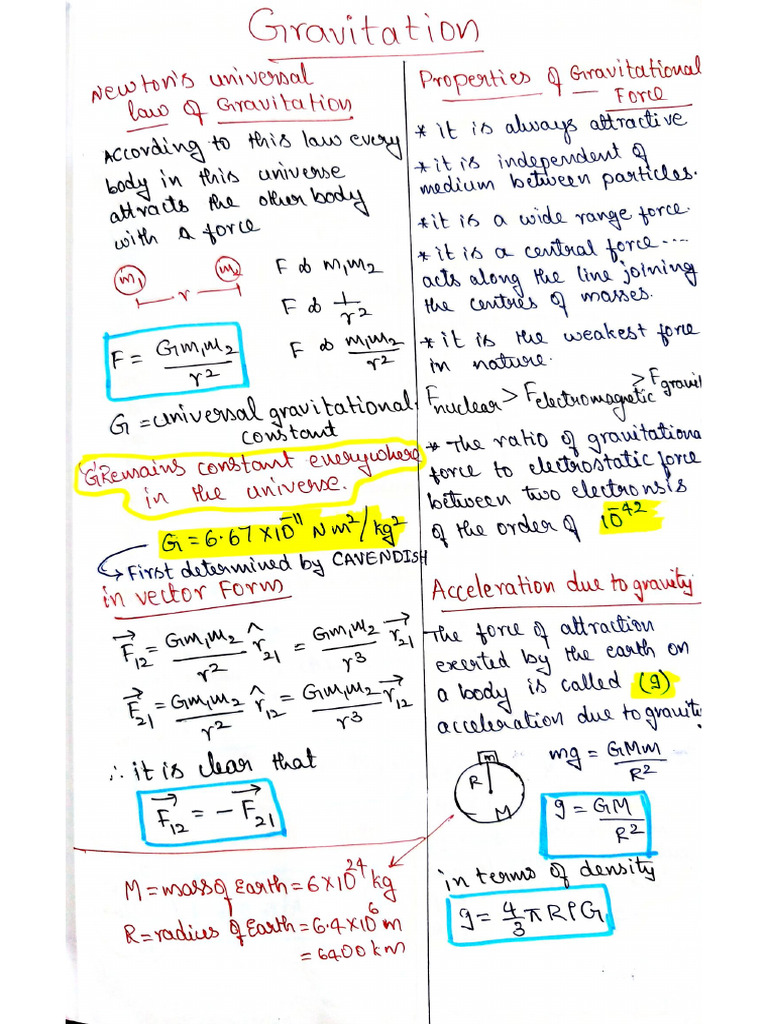 Gravitation
Newton's universal
law of Gravitation
According to this law every
body in this universe
attracts the other body
with a force
m₁ m₂
r
F ∝ m₁m₂
F ∝ 1/r²
F ∝ m₁m₂/r²
F = Gm₁m₂/r²
G = universal gravitational
constant
'G' Remains constant everywhere
in the universe.
G = 6.67×10⁻¹¹ Nm²/kg²
→ First determined by CAVENDISH
in vector Form
F⃗₁₂ = Gm₁m₂/r² r̂₂₁ = Gm₁m₂/r³ r⃗₂₁
F⃗₂₁ = Gm₁m₂/r² r̂₁₂ = Gm₁m₂/r³ r⃗₁₂
∴ it is clear that
F⃗₁₂ = -F⃗₂₁
M = mass of Earth = 6×10²⁴ kg
R = radius of Earth = 6.4×10⁶ m
= 6400 km
Properties of Gravitational
Force
* it is always attractive
* it is independent of
medium between particles.
* it is a wide range force.
* it is a central force....
acts along the line joining
the centres of masses.
* it is the weakest force
in nature.
Fnuclear > Felectromagnetic > Fgravit
* The ratio of gravitationa
force to electrostatic force
between two electrons is
of the order of 10⁻⁴²
Acceleration due to gravity
The force of attraction
exerted by the earth on
a body is called (g)
acceleration due to gravity
m
R
M
mg = GMm/R²
g = GM/R²
in terms of density
g = 4/3 πRρG